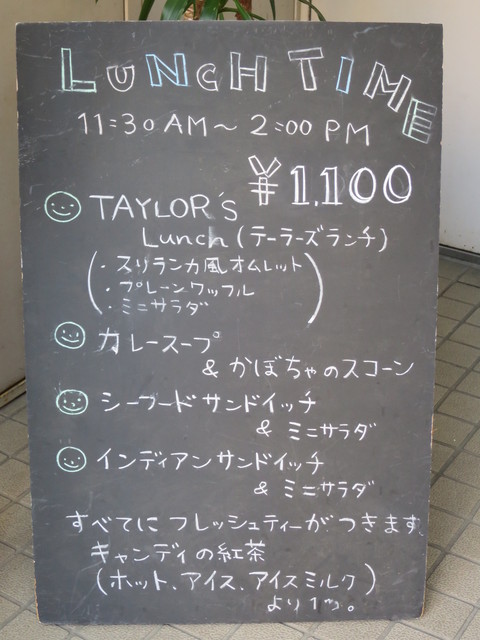 LUNCH TIME
11:30 AM～2:00 PM
¥1,100
TAYLOR's
Lunch (テーラーズランチ)
(・スリランカ風オムレット
・プレーンワッフル
・ミニサラダ)
カレースープ
& かぼちゃのスコーン
シーフードサンドイッチ
& ミニサラダ
インディアンサンドイッチ
& ミニサラダ
すべてにフレッシュティーがつきます。
キャンディの紅茶
(ホット、アイス、アイスミルク)
より1つ。